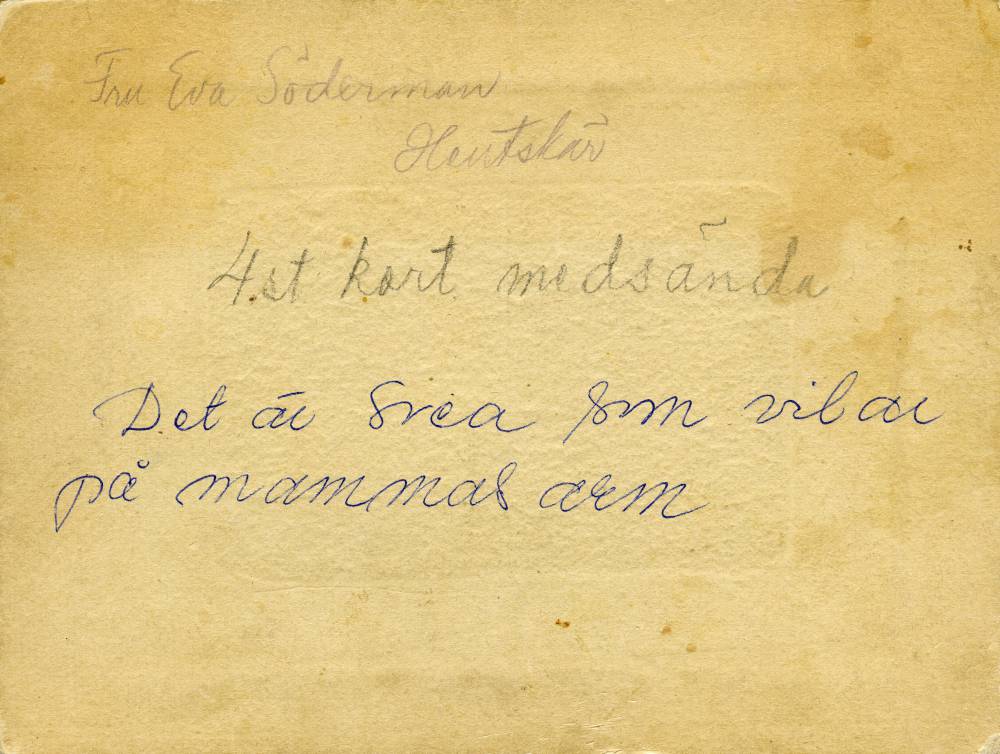 Fru Eva Söderman
Hentskär
4 st kort medsända
Det är Svea som vilar
på mammas arm